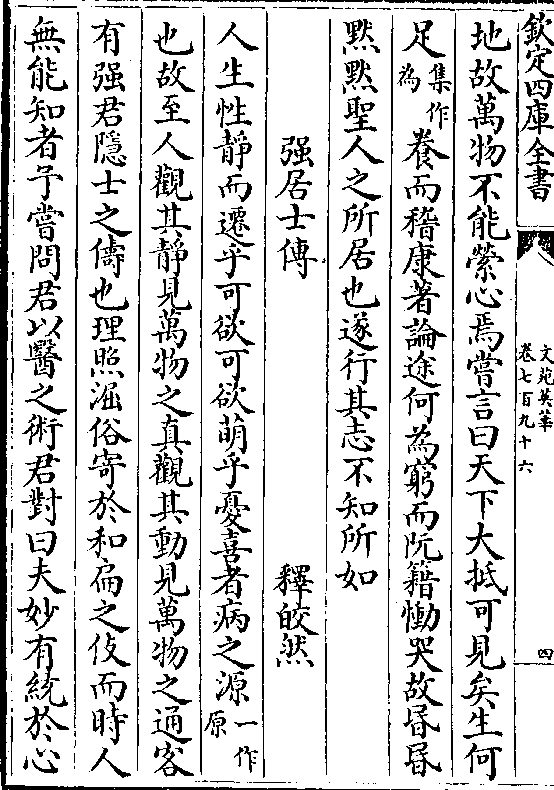 欽定四庫全書
文苑英華
卷七百九十六
四
地故萬物不能縈心焉嘗言曰天下大抵可見矣生何
足集作為養而嵇康著論途何為窮而阮籍慟哭故昬昬
默默聖人之所居也遂行其志不知所如
强居士傳 釋皎然
人生性靜而遷乎可欲可欲萌乎憂喜者病之源一作原
也故至人觀其靜見萬物之真觀其動見萬物之通客
有强君隱士之儔也理照混俗寄於和扁之伎而時人
無能知者予嘗問君以醫之術君對曰夫妙有統於心